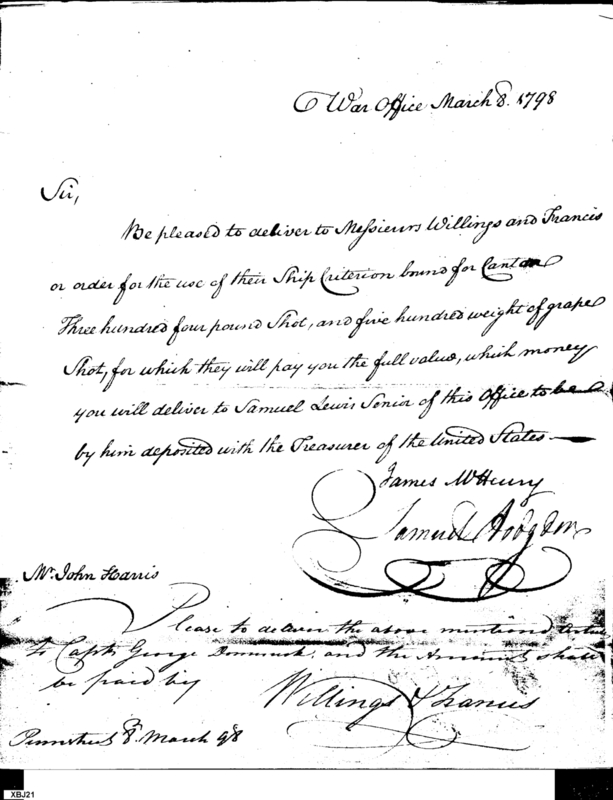 War Office March 8. 1798
Sir,
Be pleased to deliver to Messieurs Willings and Francis
or order for the use of their Ship Criterion bound for Canton
Three hundred four pound Shot, and five hundred weight of grape
Shot, for which they will pay you the full value, which money
you will deliver to Samuel Lewis Senior of this Office to be
by him deposited with the Treasurer of the United States
James McHenry
Samuel Hodgdon
Mr. John Harris
Please to deliver the above mentioned
to Capt. George and the Amount shall
be paid by
Willings & Francis
8 March 98
XBJ21